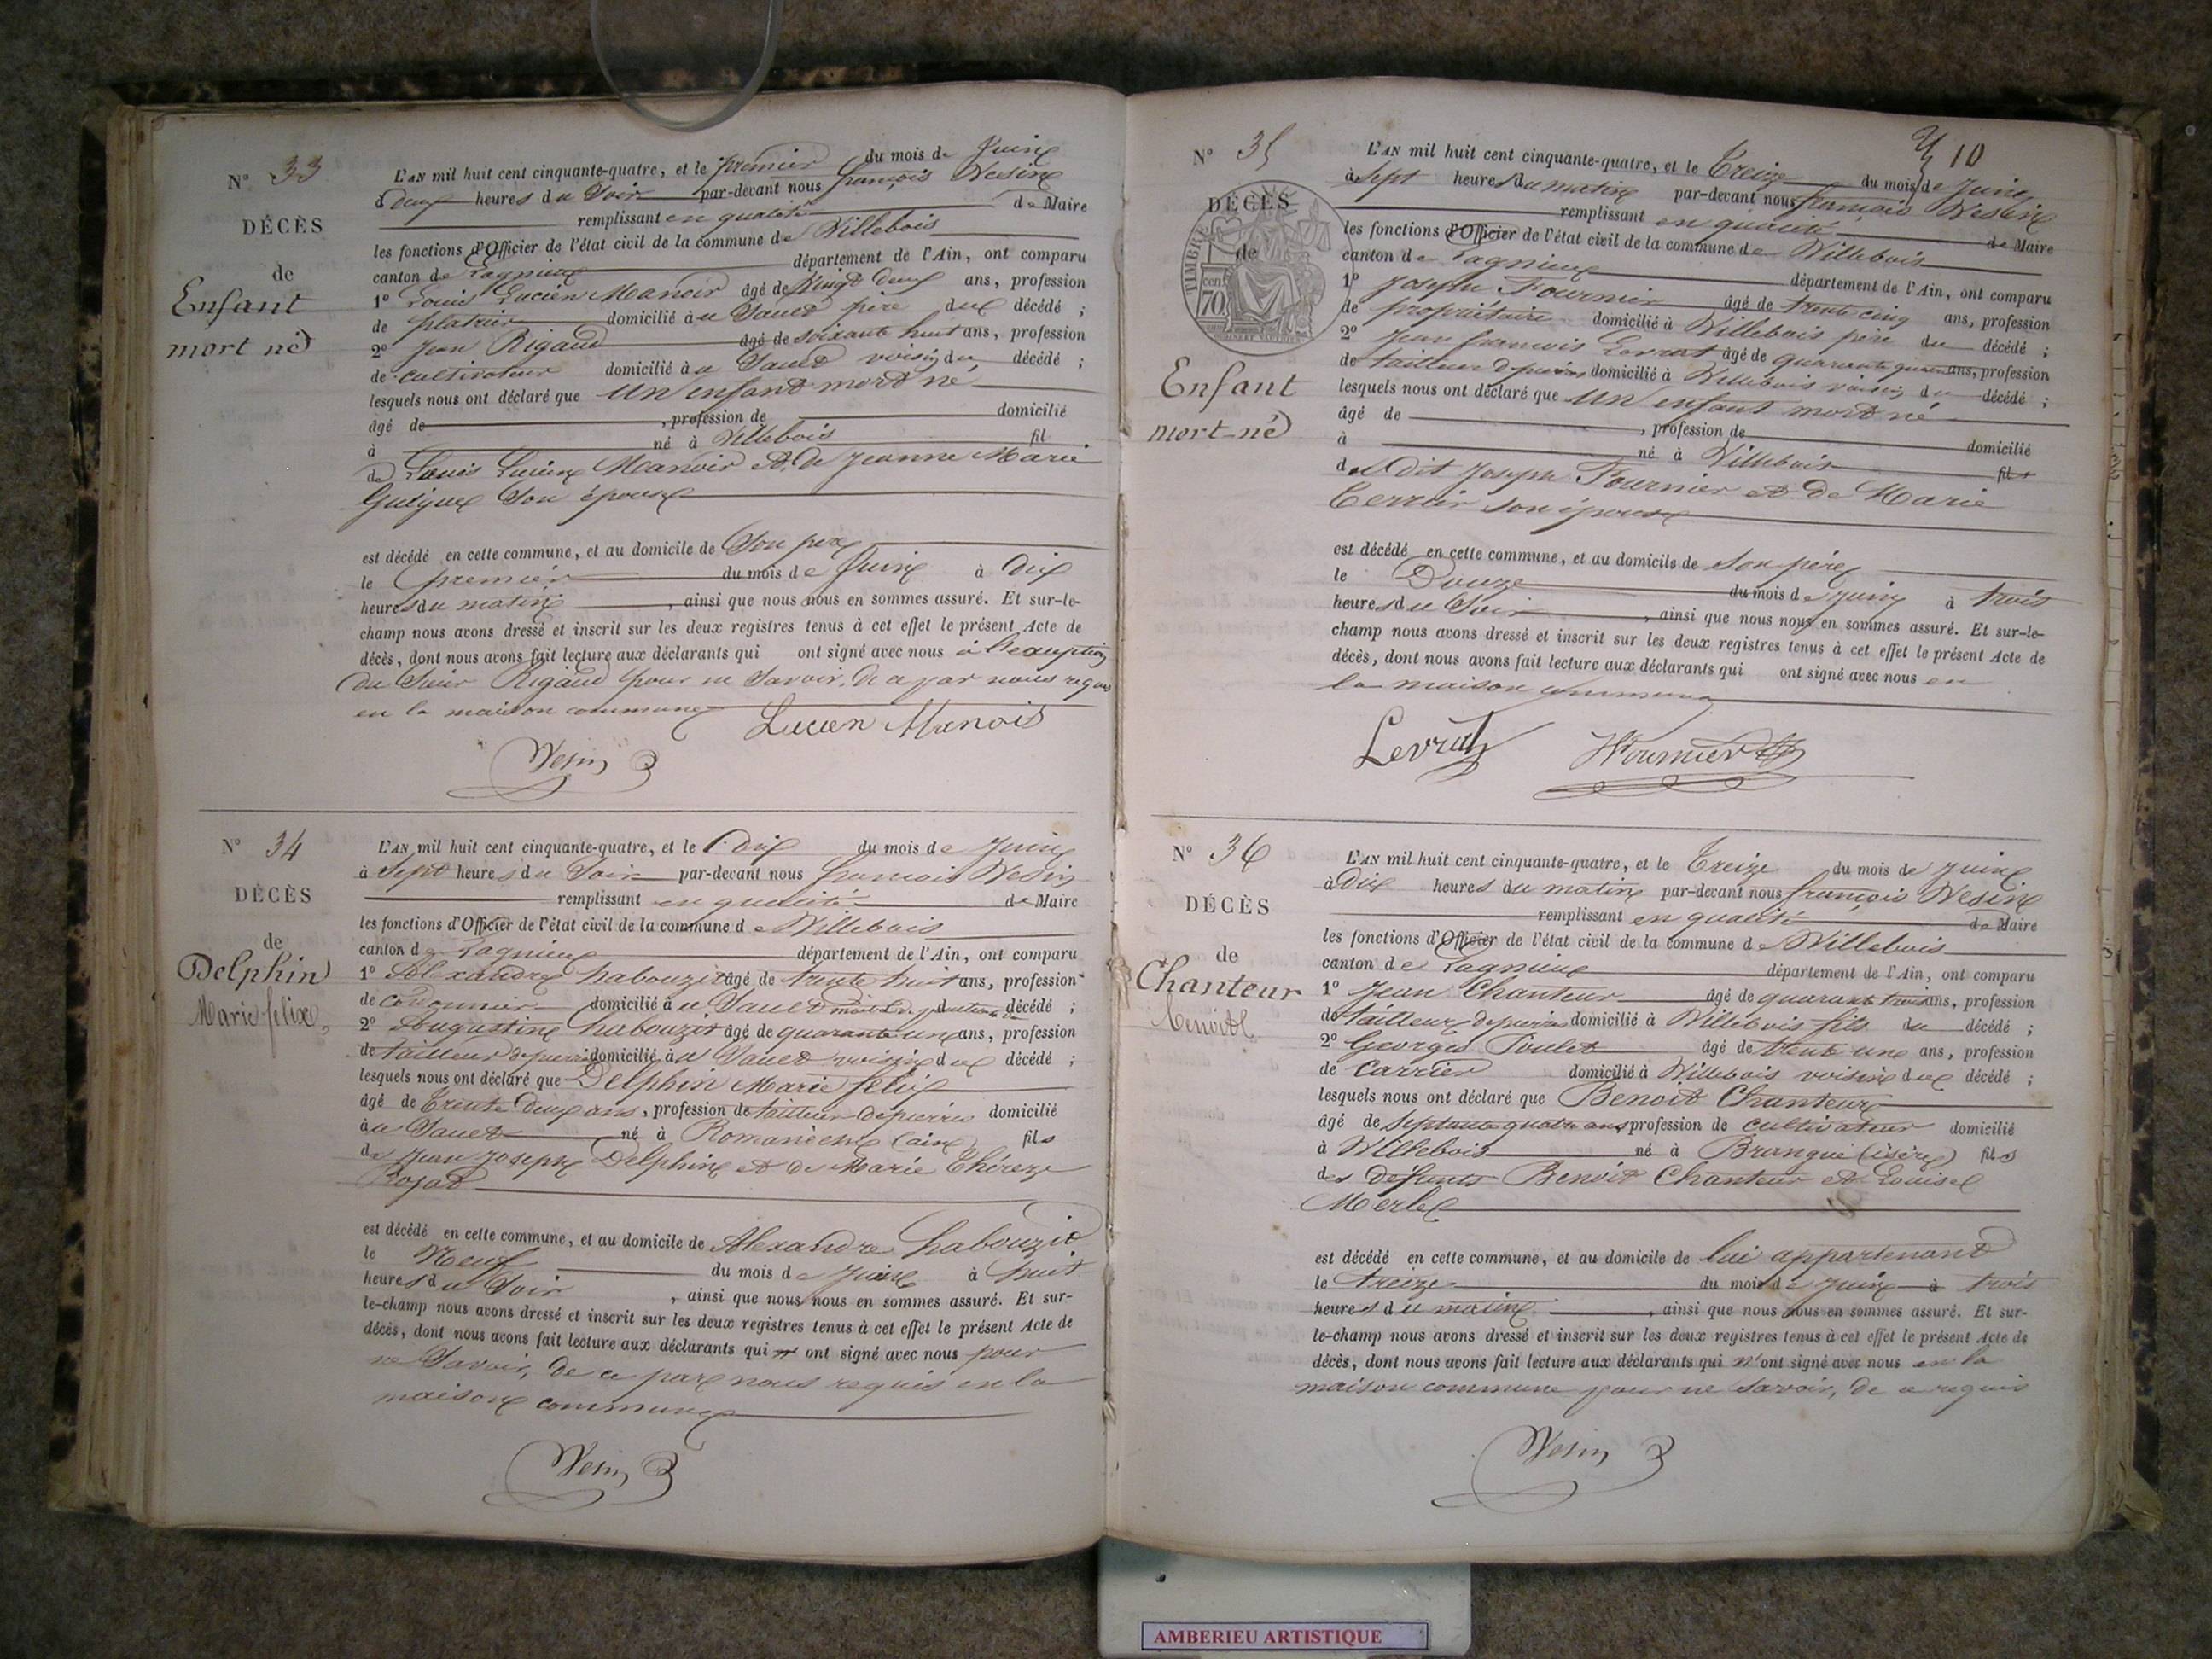 N° 33
DÉCÈS
de
Enfant
mort né
L'AN mil huit cent cinquante-quatre, et le premier du mois de Juin
à deux heures du Soir par-devant nous françois Vesin
remplissant en qualité de Maire
les fonctions d'Officier de l'état civil de la commune de Villebois
canton de Lagnieu département de l'Ain, ont comparu
1° Louis Lucien Manoir âgé de Vingt deux ans, profession
de platrier domicilié au Sault père du décédé ;
2° Jean Rigaud âgé de soixante huit ans, profession
de cultivateur domicilié au Sault voisin du décédé ;
lesquels nous ont déclaré que Un enfant mort né
âgé de , profession de domicilié
à né à Villebois fil
de Louis Lucien Manoir et de Jeanne Marie
Guigue Son épouse
est décédé en cette commune, et au domicile de Son père
le premier du mois de Juin à Dix
heures du matin , ainsi que nous nous en sommes assuré. Et sur-le-
champ nous avons dressé et inscrit sur les deux registres tenus à cet effet le présent Acte de
décès, dont nous avons fait lecture aux déclarants qui ont signé avec nous à l'exception
du Sieur Rigaud pour ne Savoir, de ce par nous requis
en la maison commune
Lucien Manois
Vesin
N° 34
DÉCÈS
de
Delphin
Marie felix
L'AN mil huit cent cinquante-quatre, et le Dix du mois de Juin
à Sept heures du Soir par-devant nous françois Vesin
remplissant en qualité de Maire
les fonctions d'Officier de l'état civil de la commune de Villebois
canton de Lagnieu département de l'Ain, ont comparu
1° Alexandre habouzit âgé de trente huit ans, profession
de cordonnier domicilié au Sault décédé ;
2° Augustin habouzit âgé de quarante un ans, profession
de tailleur de pierres domicilié au Sault voisin du décédé ;
lesquels nous ont déclaré que Delphin Marie felix
âgé de Trente Deux ans, profession de tailleur de pierres domicilié
au Sault né à Romanèche (ain) fils
de Jean Joseph Delphin et de Marie Thérèze
Rojat
est décédé en cette commune, et au domicile de Alexandre habouzit
le Neuf du mois de Juin à huit
heures du Soir , ainsi que nous nous en sommes assuré. Et sur-
le-champ nous avons dressé et inscrit sur les deux registres tenus à cet effet le présent Acte de
décès, dont nous avons fait lecture aux déclarants qui n' ont signé avec nous pour
ne Savoir, de ce par nous requis en la
maison commune
Vesin
10
N° 35
DÉCÈS
de
TIMBRE
70 cen
Enfant
mort-né
L'AN mil huit cent cinquante-quatre, et le Treize du mois de Juin
à Sept heures du matin par-devant nous françois Vesin
remplissant en qualité de Maire
les fonctions d'Officier de l'état civil de la commune de Villebois
canton de Lagnieu département de l'Ain, ont comparu
1° Joseph Fournier âgé de trente cinq ans, profession
de propriétaire domicilié à Villebois père du décédé ;
2° Jean francois Levrat âgé de quarante ans, profession
de tailleur de pierres domicilié à Villebois voisin du décédé ;
lesquels nous ont déclaré que Un enfant mort né
âgé de , profession de domicilié
à né à Villebois fil
du dit Joseph Fournier et de Marie
son épouse
est décédé en cette commune, et au domicile de Son père
le Douze du mois de Juin à trois
heures du Soir , ainsi que nous nous en sommes assuré. Et sur-le-
champ nous avons dressé et inscrit sur les deux registres tenus à cet effet le présent Acte de
décès, dont nous avons fait lecture aux déclarants qui ont signé avec nous en
la maison commune
Levrat Fournier
N° 36
DÉCÈS
de
Chanteur
Benoit
L'AN mil huit cent cinquante-quatre, et le Treize du mois de Juin
à Dix heures du matin par-devant nous françois Vesin
remplissant en qualité de Maire
les fonctions d'Officier de l'état civil de la commune de Villebois
canton de Lagnieu département de l'Ain, ont comparu
1° Jean Chanteur âgé de quarante trois ans, profession
de tailleur de pierres domicilié à Villebois fils du décédé ;
2° Georges Poulet âgé de trente une ans, profession
de Carrier domicilié à Villebois voisin du décédé ;
lesquels nous ont déclaré que Benoit Chanteur
âgé de Septante quatre ans profession de cultivateur domicilié
à Villebois né à Brangue (isère) fils
des défunts Benoit Chanteur et Louise
Merle
est décédé en cette commune, et au domicile de lui appartenant
le treize du mois de Juin à trois
heures du matin , ainsi que nous nous en sommes assuré. Et sur-
le-champ nous avons dressé et inscrit sur les deux registres tenus à cet effet le présent Acte de
décès, dont nous avons fait lecture aux déclarants qui n'ont signé avec nous en la
maison commune pour ne Savoir, de ce requis
Vesin
AMBERIEU ARTISTIQUE